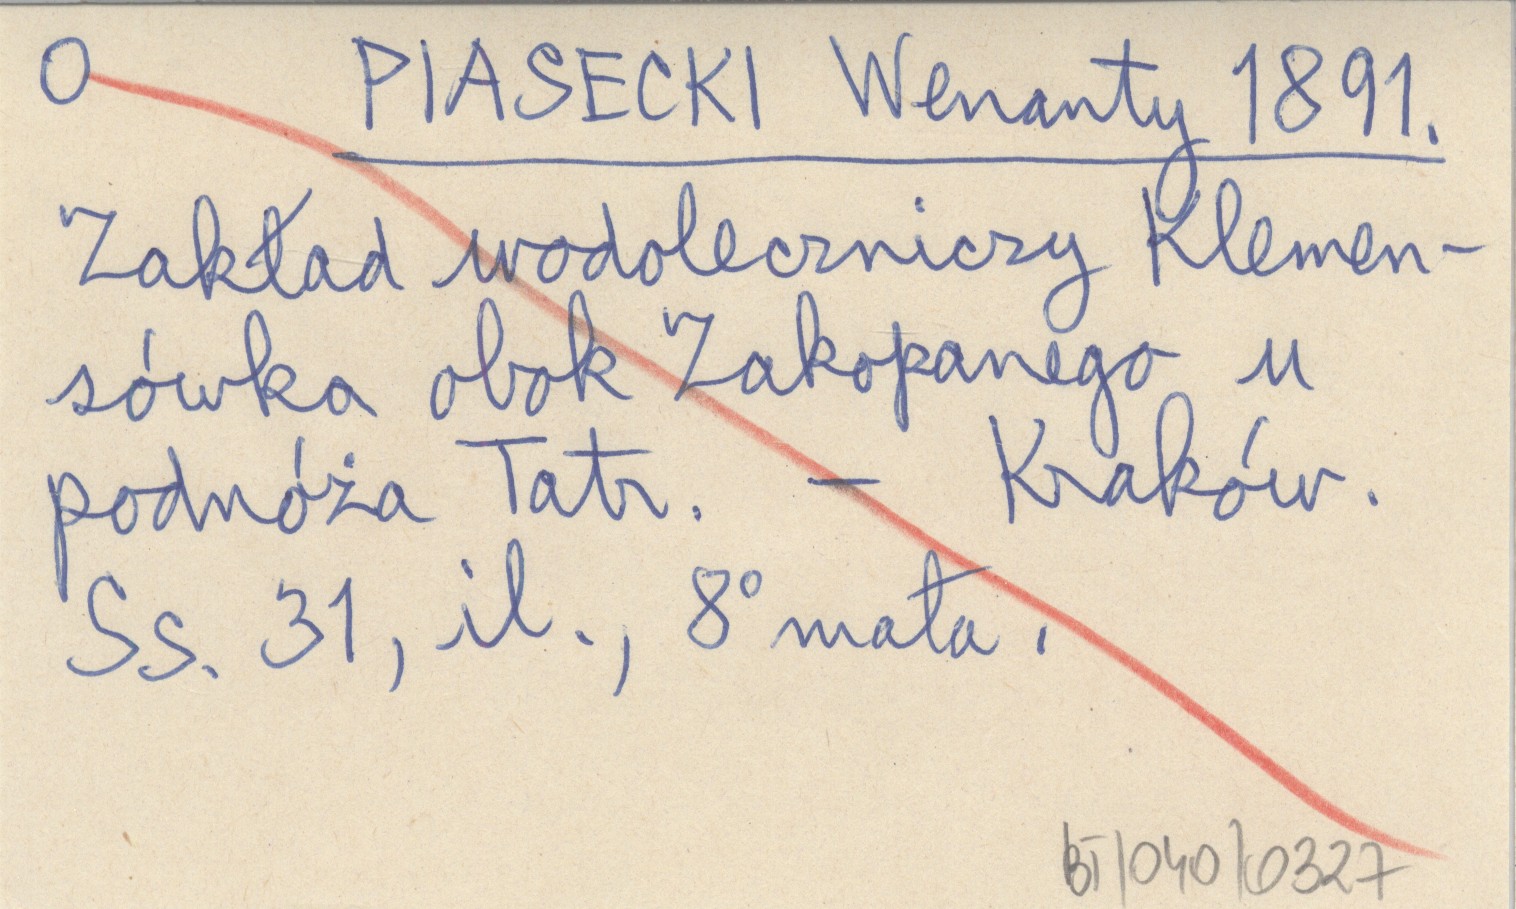 O PIASECKI Wenanty 1891.
Zakład wodoleczniczy Klemen-
sówka obok Zakopanego u
podnóża Tatr. — Kraków.
Ss. 31, il., 8° mała.
BT/040/0327